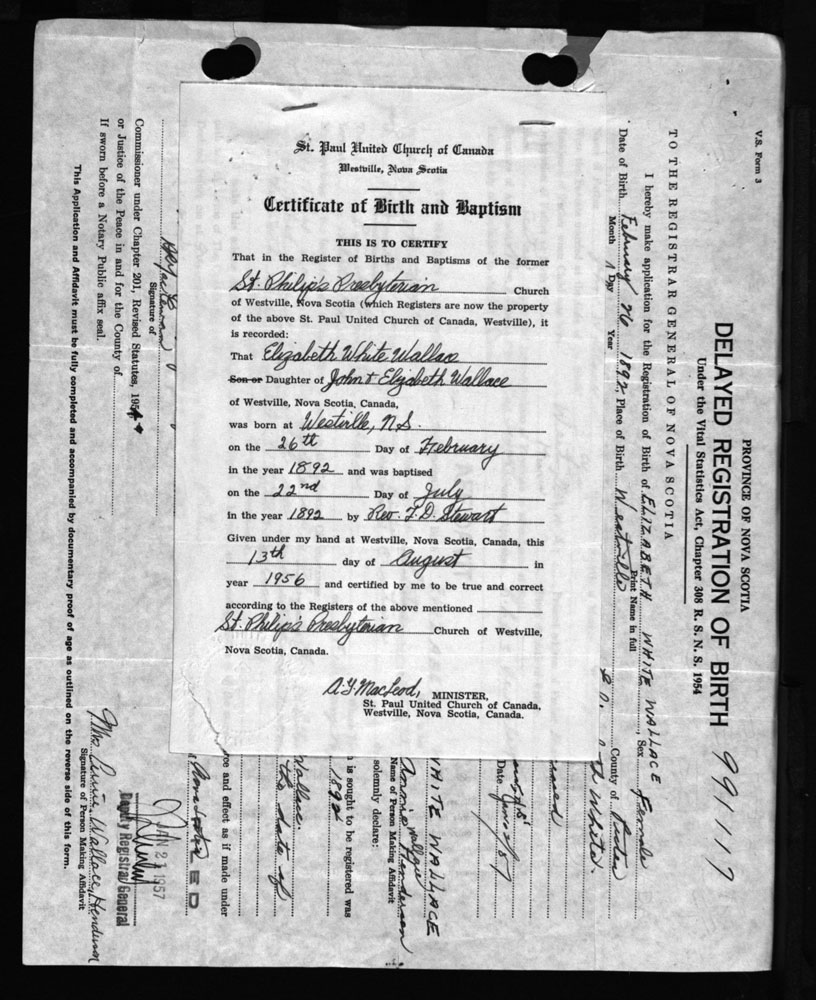 St. Paul United Church of Canada
Westville, Nova Scotia
Certificate of Birth and Baptism
THIS IS TO CERTIFY
That in the Register of Births and Baptisms of the former
St. Philip's Presbyterian Church
of Westville, Nova Scotia (which Registers are now the property
of the above St. Paul United Church of Canada, Westville), it
is recorded:
That Elizabeth White Wallace
Son or Daughter of John & Elizabeth Wallace
of Westville, Nova Scotia, Canada,
was born at Westville, N.S.
on the 26th Day of February
in the year 1892 and was baptised
on the 22nd Day of July
in the year 1892 by Rev. T. D. Stewart
Given under my hand at Westville, Nova Scotia, Canada, this
13th day of August in
year 1956 and certified by me to be true and correct
according to the Registers of the above mentioned
St. Philip's Presbyterian Church of Westville,
Nova Scotia, Canada.
A. F. MacLeod, MINISTER,
St. Paul United Church of Canada,
Westville, Nova Scotia, Canada.
V.S. Form 3
PROVINCE OF NOVA SCOTIA
DELAYED REGISTRATION OF BIRTH 991117
Under the Vital Statistics Act, Chapter 308 R. S. N. S. 1954
TO THE REGISTRAR GENERAL OF NOVA SCOTIA
I hereby make application for the Registration of Birth of ELIZABETH WHITE WALLACE, Sex Female
Print Name in full
Date of Birth February 26 1892, Place of Birth Westville County of Pictou
Month Day Year
White.
Date
WHITE WALLACE
Annie Wallace Henderson
Name of Person Making Affidavit
solemnly declare:
is sought to be registered was
1892
Wallace.
the date of
force and effect as if made under
Signature of
Commissioner under Chapter 201, Revised Statutes, 1954
or Justice of the Peace in and for the County of
If sworn before a Notary Public affix seal.
JAN 21 1957
Deputy Registrar General
Mrs Annie Wallace Henderson
Signature of Person Making Affidavit
This Application and Affidavit must be fully completed and accompanied by documentary proof of age as outlined on the reverse side of this form.